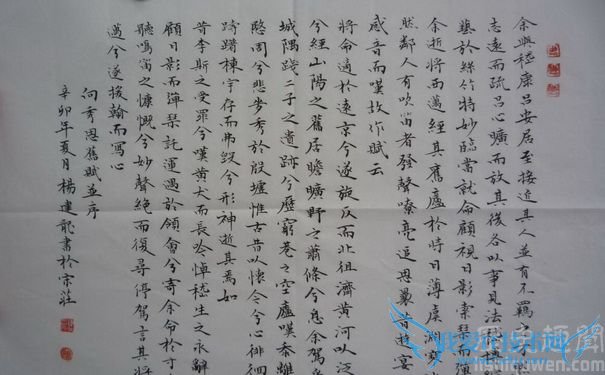 余與嵇康呂安居至接近其人並有不羈之
志遠而疏呂心曠而放其後各以事見法嵇
藝於絲竹特妙臨當就命顧視日影索琴而彈
余逝將西邁經其舊廬於時日薄虞淵
然鄰人有吹笛者發聲嘹亮追思曩昔遊宴
感音而嘆故作賦云
將命適於遠京兮遂旋反而北徂濟黃河以泛
兮經山陽之舊居瞻曠野之蕭條兮息余駕乎
城隅踐二子之遺跡兮歷窮巷之空廬嘆黍離
愍周兮悲麥秀於殷墟惟古昔以懷今兮心徘徊
躊躇棟宇存而弗毀兮形神逝其焉如
昔李斯之受罪兮嘆黃犬而長吟悼嵇生之永辭
顧日影而彈琴託運遇於領會兮寄余命於寸
聽鳴笛之慷慨兮妙聲絕而復尋停駕言其將
邁兮遂援翰而寫心
向秀思舊賦並序
辛卯年夏月楊建龍書於宗莊